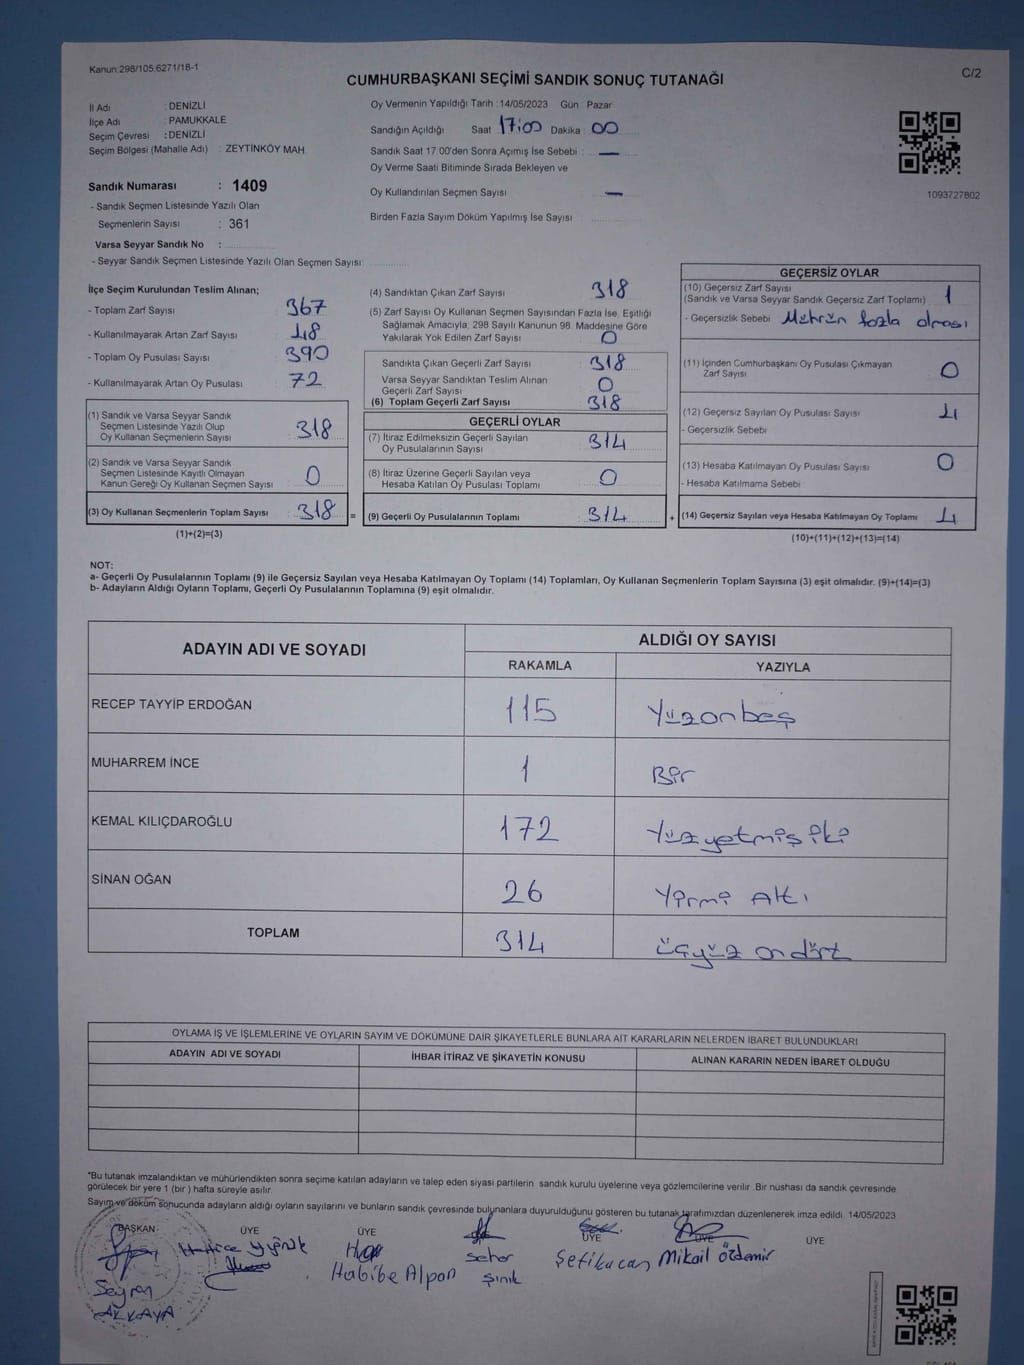 Kanun:298/105.6271/18-1
C/2
CUMHURBAŞKANI SEÇİMİ SANDIK SONUÇ TUTANAĞI
İl Adı : DENİZLİ
İlçe Adı : PAMUKKALE
Seçim Çevresi : DENİZLİ
Seçim Bölgesi (Mahalle Adı) : ZEYTİNKÖY MAH.
Sandık Numarası : 1409
- Sandık Seçmen Listesinde Yazılı Olan
Seçmenlerin Sayısı : 361
Varsa Seyyar Sandık No :
- Seyyar Sandık Seçmen Listesinde Yazılı Olan Seçmen Sayısı:
Oy Vermenin Yapıldığı Tarih :14/05/2023 Gün : Pazar
Sandığın Açıldığı Saat 17:00 Dakika : 00
Sandık Saat 17:00'den Sonra Açımış İse Sebebi : —
Oy Verme Saati Bitiminde Sırada Bekleyen ve
Oy Kullandırılan Seçmen Sayısı —
Birden Fazla Sayım Döküm Yapılmış İse Sayısı
1093727802
İlçe Seçim Kurulundan Teslim Alınan;
- Toplam Zarf Sayısı 367
- Kullanılmayarak Artan Zarf Sayısı 48
- Toplam Oy Pusulası Sayısı 390
- Kullanılmayarak Artan Oy Pusulası 72
(1) Sandık ve Varsa Seyyar Sandık
Seçmen Listesinde Yazılı Olup
Oy Kullanan Seçmenlerin Sayısı 318
(2) Sandık ve Varsa Seyyar Sandık
Seçmen Listesinde Kayıtlı Olmayan
Kanun Gereği Oy Kullanan Seçmen Sayısı 0
(3) Oy Kullanan Seçmenlerin Toplam Sayısı 318 =
(1)+(2)=(3)
(4) Sandıktan Çıkan Zarf Sayısı 318
(5) Zarf Sayısı Oy Kullanan Seçmen Sayısından Fazla İse, Eşitliği
Sağlamak Amacıyla, 298 Sayılı Kanunun 98. Maddesine Göre
Yakılarak Yok Edilen Zarf Sayısı 0
Sandıkta Çıkan Geçerli Zarf Sayısı 318
Varsa Seyyar Sandıktan Teslim Alınan
Geçerli Zarf Sayısı 0
(6) Toplam Geçerli Zarf Sayısı 318
GEÇERLİ OYLAR
(7) İtiraz Edilmeksizin Geçerli Sayılan
Oy Pusulalarının Sayısı 314
(8) İtiraz Üzerine Geçerli Sayılan veya
Hesaba Katılan Oy Pusulası Toplamı 0
(9) Geçerli Oy Pusulalarının Toplamı : 314 +
GEÇERSİZ OYLAR
(10) Geçersiz Zarf Sayısı 1
(Sandık ve Varsa Seyyar Sandık Geçersiz Zarf Toplamı)
- Geçersizlik Sebebi : Mührün fazla olması
(11) İçinden Cumhurbaşkanı Oy Pusulası Çıkmayan
Zarf Sayısı 0
(12) Geçersiz Sayılan Oy Pusulası Sayısı 4
- Geçersizlik Sebebi
(13) Hesaba Katılmayan Oy Pusulası Sayısı 0
- Hesaba Katılmama Sebebi
(14) Geçersiz Sayılan veya Hesaba Katılmayan Oy Toplamı 4
(10)+(11)+(12)+(13)=(14)
NOT:
a- Geçerli Oy Pusulalarının Toplamı (9) ile Geçersiz Sayılan veya Hesaba Katılmayan Oy Toplamı (14) Toplamları, Oy Kullanan Seçmenlerin Toplam Sayısına (3) eşit olmalıdır. (9)+(14)=(3)
b- Adayların Aldığı Oyların Toplamı, Geçerli Oy Pusulalarının Toplamına (9) eşit olmalıdır.
ADAYIN ADI VE SOYADI
ALDIĞI OY SAYISI
RAKAMLA YAZIYLA
RECEP TAYYİP ERDOĞAN 115 Yüzonbeş
MUHARREM İNCE 1 Bir
KEMAL KILIÇDAROĞLU 172 Yüzyetmiş iki
SİNAN OĞAN 26 Yirmi Altı
TOPLAM 314 üçyüz ondört
OYLAMA İŞ VE İŞLEMLERİNE VE OYLARIN SAYIM VE DÖKÜMÜNE DAİR ŞİKAYETLERLE BUNLARA AİT KARARLARIN NELERDEN İBARET BULUNDUKLARI
ADAYIN ADI VE SOYADI İHBAR İTİRAZ VE ŞİKAYETİN KONUSU ALINAN KARARIN NEDEN İBARET OLDUĞU
*Bu tutanak imzalandıktan ve mühürlendikten sonra seçime katılan adayların ve talep eden siyasi partilerin sandık kurulu üyelerine veya gözlemcilerine verilir. Bir nüshası da sandık çevresinde
görülecek bir yere 1 (bir ) hafta süreyle asılır.
Sayım ve döküm sonucunda adayların aldığı oyların sayılarını ve bunların sandık çevresinde bulunanlara duyurulduğunu gösteren bu tutanak tarafımızdan düzenlenerek imza edildi. 14/05/2023
BAŞKAN ÜYE ÜYE ÜYE ÜYE ÜYE
Seyran
AKKAYA
Hatice
Habibe Alpan
Seher
Şinik
Mikail Özdemir